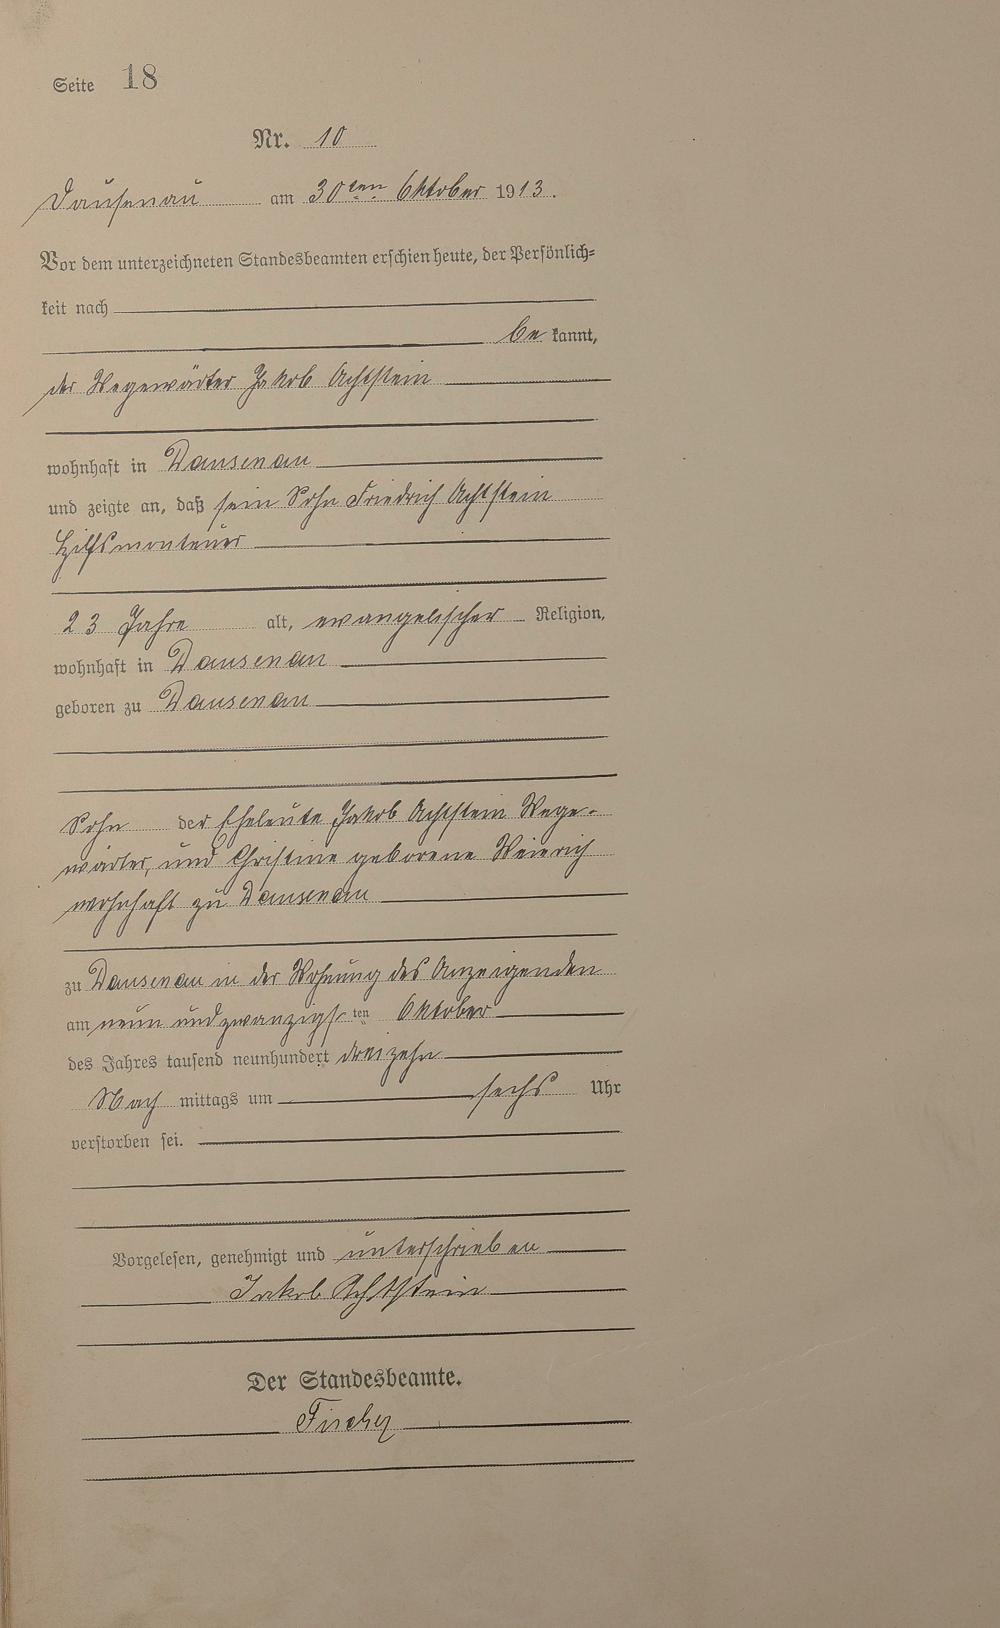 Seite 18
Nr. 10
Dausenau am 30ten Oktober 1913.
Vor dem unterzeichneten Standesbeamten erschien heute, der Persönlich-
keit nach
be kannt,
der Wegewärter Jakob Achtstein
wohnhaft in Dausenau
und zeigte an, daß sein Sohn Friedrich Achtstein
Hilfsmonteur
23 Jahre alt, evangelischer Religion,
wohnhaft in Dausenau
geboren zu Dausenau
Sohn der Eheleute Jakob Achtstein Wege-
wärter, und Christine geborene Weinrich
wohnhaft zu Dausenau
zu Dausenau in der Wohnung des Anzeigenden
am neun und zwanzigs ten Oktober
des Jahres tausend neunhundert dreizehn
Nach mittags um sechs Uhr
verstorben sei.
Vorgelesen, genehmigt und unterschrieben
Jakob Achtstein
Der Standesbeamte.
Fischer